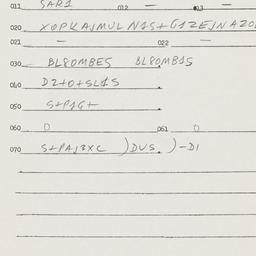 011 SAR1 012 — 013 —
020 XOPKAJMUL N1S+G1ZEJNAZO
021 — 022 —
030 BL80MBES BL80MB1S
040 DZ+0+SL1S
050 S+PAG+
060 0 061 0
070 S+PAJ3XC )DVS. )-D1